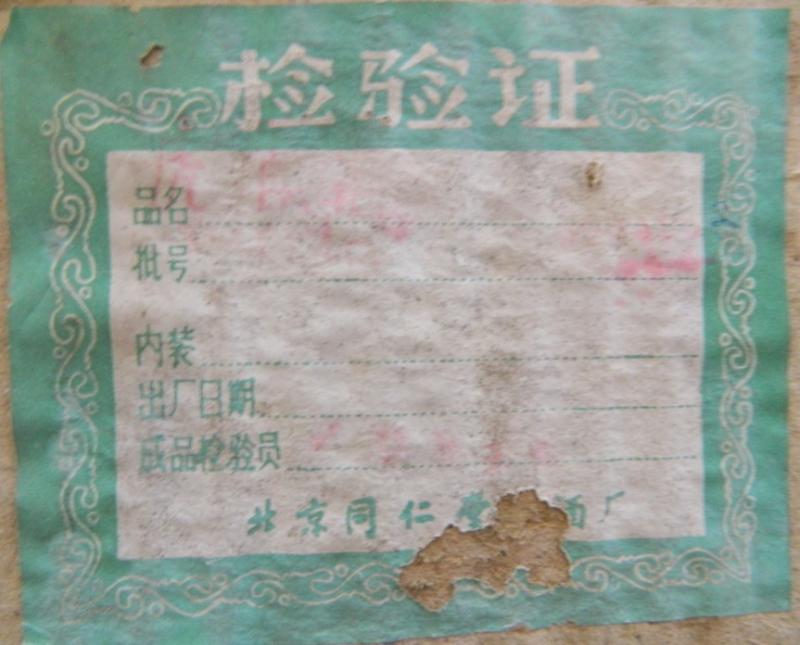 检验证
品名
批号
内装
出厂日期
成品检验员
北京同仁堂 酒厂